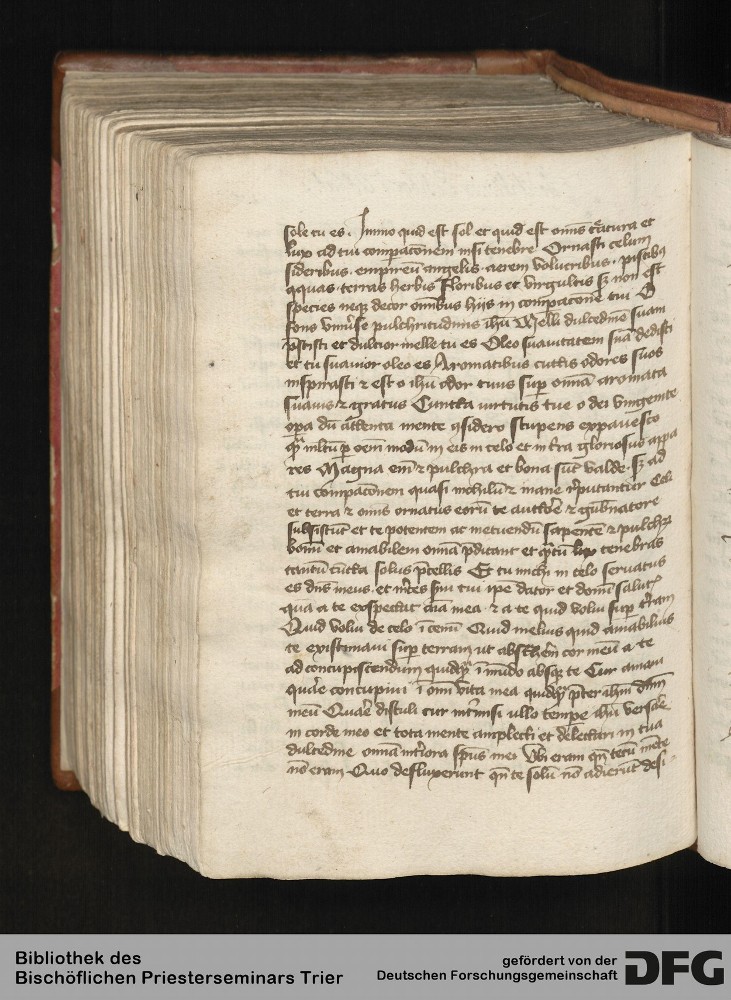 sole tu es. Immo quid est sol et quid est om̄is c̄atura et
lux ad tui compaconem nisi tenebre Ornasti celum
sideribus. empireū angelis. aerem volucribus. piscibꝰ
aquas. terras herbis floribus et virgultis sꝫ non est
species neqꝫ decor om̄ibus hijs in compacone tui O
fons vniu͛se pulchritudinis ih̄u Melli dulcedinē suam
p̄stitisti et dulcior melle tu es Oleo suauitatem suā dedisti
et tu suauior oleo es Aromatibus cūctis odores suos
inspirasti ⁊ est o ih̄u odor tuus sup̄ om̄ia aromata
suauis ⁊ gratus Cuncta virtutis tue o dei vnigenite
opa dū attenta mente ꝯsidero stupens expauesco
qꝫ mltū ꝑ oēm modū in eis in celo et in t͛ra gloriosus appa
res Magna em̄ ⁊ pulchra et bona sūt valde. sꝫ ad
tui compaconem quasi nichilū ⁊ inane r̄putantur Celi
et terra ⁊ om̄is ornatus eorū te auctorē ⁊ gub̄natore
subsistūt et te potentem ac metuendū sapientē ⁊ pulchꝝ
bonū et amabilem om̄ia p̄dicant et qͣtū lux tenebras
tantū cūcta solus p̄cellis Et tu michi in celo seruatus
es dn̄s meus. et m͛ces sinu tui ip̄e dator et donū salut͛
qua a te exspectat aīa mea. ⁊ a te quid volui sup̄ t͛ram
Quid volui de celo
te existimaui sup̄ terram ut abst͛herē cor meū a te
ad concupiscendum quidqͣꝫ ī mūdo absqꝫ te Cur amaui
quare concupiui ī om̄i vita mea quidqͣꝫ p̄ter ih̄m dn̄m
meū Quare distuli cur int͛misi ullo tempe ih̄ū versare
in corde meo et tota mente amplecti et delectari in tua
dulcedine om̄ia int͛iora sp̄us mei Vbi eram qn̄ tecū mēte
nō eram Quo defluxerunt qn̄ te solū nō adierūt desi-
Bibliothek des
Bischöflichen Priesterseminars Trier
gefördert von der
Deutschen Forschungsgemeinschaft
DFG